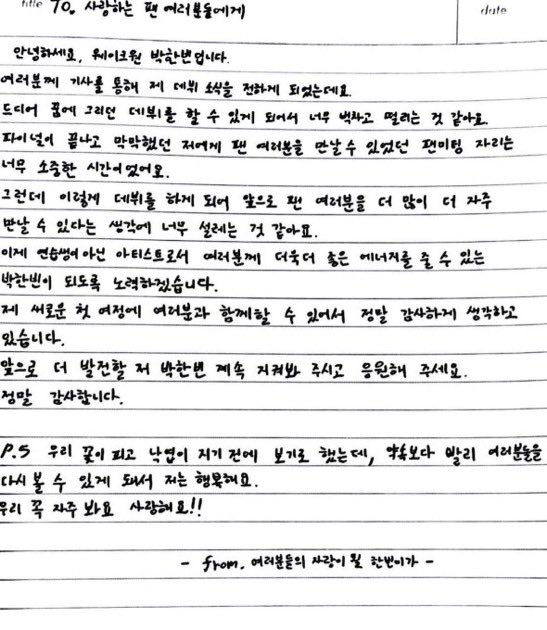 title To. 사랑하는 팬 여러분들에게
date
안녕하세요, 웨이크원 박한빈입니다.
여러분께 기사를 통해 제 데뷔 소식을 전하게 되었는데요.
드디어 꿈에 그리던 데뷔를 할 수 있게 되어서 너무 벅차고 떨리는 것 같아요.
파이널이 끝나고 막막했던 저에게 팬 여러분을 만날 수 있었던 팬미팅 자리는
너무 소중한 시간이었어요.
그런데 이렇게 데뷔를 하게 되어 앞으로 팬 여러분을 더 많이 더 자주
만날 수 있다는 생각에 너무 설레는 것 같아요.
이제 연습생이 아닌 아티스트로서 여러분께 더욱더 좋은 에너지를 줄 수 있는
박한빈이 되도록 노력하겠습니다.
제 새로운 첫 여정에 여러분과 함께할 수 있어서 정말 감사하게 생각하고
있습니다.
앞으로 더 발전할 저 박한빈 계속 지켜봐 주시고 응원해 주세요.
정말 감사합니다.
P.S 우리 꽃이 피고 낙엽이 지기 전에 보기로 했는데, 약속보다 빨리 여러분들을
다시 볼 수 있게 돼서 저는 행복해요.
우리 꼭 자주 봐요 사랑해요!!
- from. 여러분들의 자랑이 될 한빈이가 -